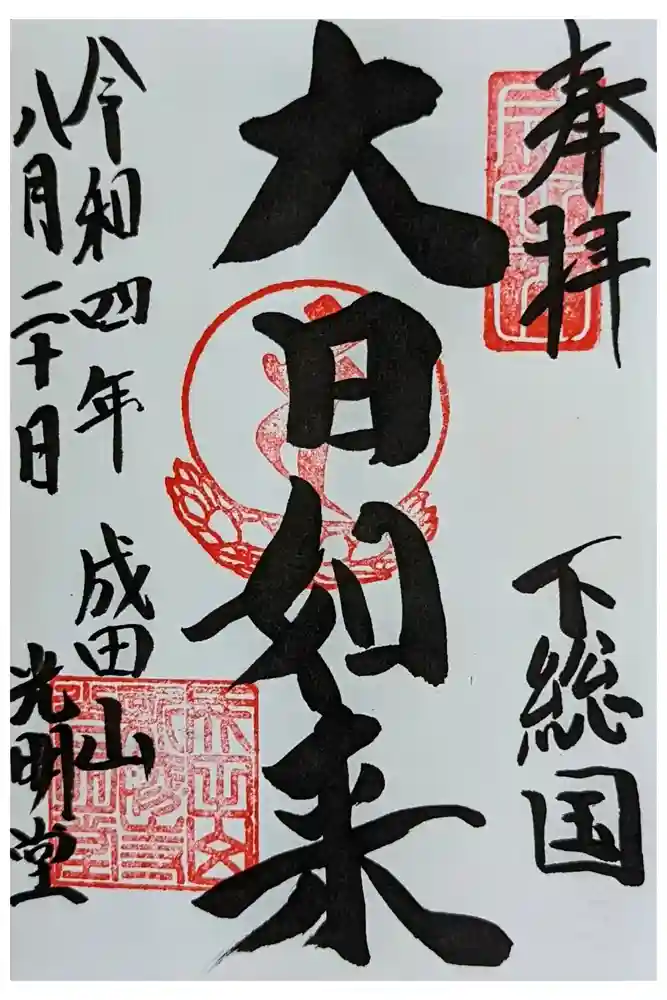 奉拝
下総国
大日如来
令和四年 成田山
八月二十日 光明堂